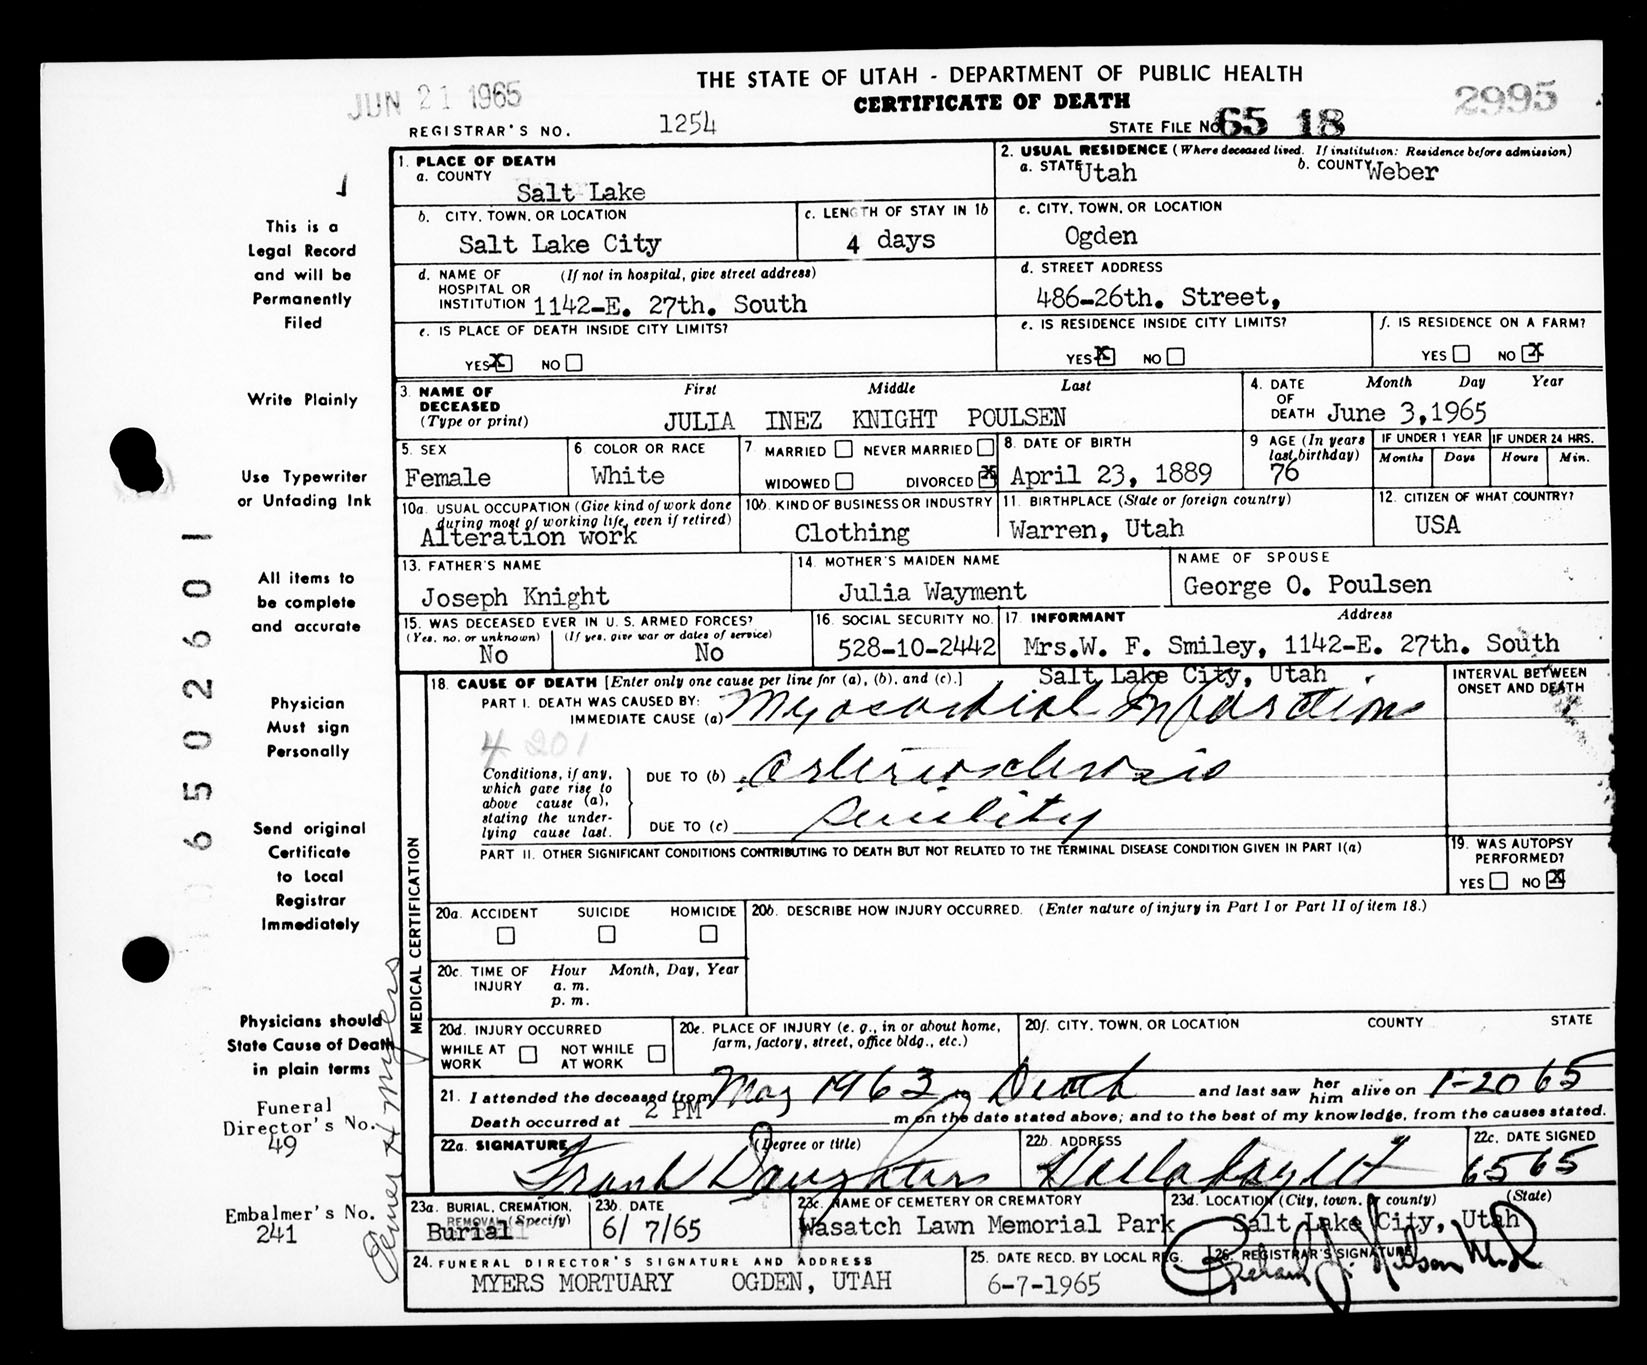 THE STATE OF UTAH - DEPARTMENT OF PUBLIC HEALTH
JUN 21 1965
CERTIFICATE OF DEATH
2995
REGISTRAR'S NO. 1254
STATE FILE NO 65 18
1. PLACE OF DEATH
a. COUNTY
Salt Lake
2. USUAL RESIDENCE (Where deceased lived. If institution: Residence before admission)
a. STATE Utah
b. COUNTY Weber
b. CITY, TOWN, OR LOCATION
Salt Lake City
c. LENGTH OF STAY IN 1b
4 days
c. CITY, TOWN, OR LOCATION
Ogden
d. NAME OF HOSPITAL OR INSTITUTION (If not in hospital, give street address)
1142-E. 27th. South
d. STREET ADDRESS
486-26th. Street,
e. IS PLACE OF DEATH INSIDE CITY LIMITS?
YES X NO
e. IS RESIDENCE INSIDE CITY LIMITS?
YES X NO
f. IS RESIDENCE ON A FARM?
YES NO X
3. NAME OF DECEASED (Type or print)
First Middle Last
JULIA INEZ KNIGHT POULSEN
4. DATE OF DEATH Month Day Year
June 3,1965
5. SEX
Female
6 COLOR OR RACE
White
7 MARRIED NEVER MARRIED
WIDOWED DIVORCED X
8. DATE OF BIRTH
April 23, 1889
9 AGE (In years last birthday)
76
IF UNDER 1 YEAR
Months Days
IF UNDER 24 HRS.
Hours Min.
10a. USUAL OCCUPATION (Give kind of work done during most of working life, even if retired)
Alteration work
10b. KIND OF BUSINESS OR INDUSTRY
Clothing
11. BIRTHPLACE (State or foreign country)
Warren, Utah
12. CITIZEN OF WHAT COUNTRY?
USA
13. FATHER'S NAME
Joseph Knight
14. MOTHER'S MAIDEN NAME
Julia Wayment
NAME OF SPOUSE
George O. Poulsen
15. WAS DECEASED EVER IN U. S. ARMED FORCES?
(Yes, no, or unknown) (If yes, give war or dates of service)
No No
16. SOCIAL SECURITY NO.
528-10-2442
17. INFORMANT Address
Mrs.W. F. Smiley, 1142-E. 27th. South
Salt Lake City, Utah
18. CAUSE OF DEATH [Enter only one cause per line for (a), (b), and (c).]
INTERVAL BETWEEN ONSET AND DEATH
PART I. DEATH WAS CAUSED BY:
IMMEDIATE CAUSE (a) Myocardial Infarction
4 201
Conditions, if any, which gave rise to above cause (a), stating the underlying cause last.
DUE TO (b) Arteriosclerosis
DUE TO (c) Senility
PART II. OTHER SIGNIFICANT CONDITIONS CONTRIBUTING TO DEATH BUT NOT RELATED TO THE TERMINAL DISEASE CONDITION GIVEN IN PART I(a)
19. WAS AUTOPSY PERFORMED?
YES NO X
MEDICAL CERTIFICATION
20a. ACCIDENT SUICIDE HOMICIDE
20b. DESCRIBE HOW INJURY OCCURRED. (Enter nature of injury in Part I or Part II of item 18.)
20c. TIME OF INJURY Hour Month, Day, Year
a. m.
p. m.
20d. INJURY OCCURRED
WHILE AT WORK NOT WHILE AT WORK
20e. PLACE OF INJURY (e. g., in or about home, farm, factory, street, office bldg., etc.)
20f. CITY, TOWN, OR LOCATION COUNTY STATE
21. I attended the deceased from May 1963 to Death and last saw her him alive on 1-20 65
Death occurred at 2 PM m on the date stated above; and to the best of my knowledge, from the causes stated.
22a. SIGNATURE (Degree or title)
Frank Daughters
22b. ADDRESS
22c. DATE SIGNED
6 5 65
23a. BURIAL, CREMATION, REMOVAL (Specify)
Burial
23b DATE
6/ 7/65
23c. NAME OF CEMETERY OR CREMATORY
Wasatch Lawn Memorial Park
23d. LOCATION (City, town, or county) (State)
Salt Lake City, Utah
24. FUNERAL DIRECTOR'S SIGNATURE AND ADDRESS
MYERS MORTUARY OGDEN, UTAH
25. DATE RECD. BY LOCAL REG.
6-7-1965
26. REGISTRAR'S SIGNATURE
This is a
Legal Record
and will be
Permanently
Filed
Write Plainly
Use Typewriter
or Unfading Ink
All items to
be complete
and accurate
Physician
Must sign
Personally
Send original
Certificate
to Local
Registrar
Immediately
Physicians should
State Cause of Death
in plain terms
Funeral
Director's No.
49
Embalmer's No.
241
65 02601
Myers